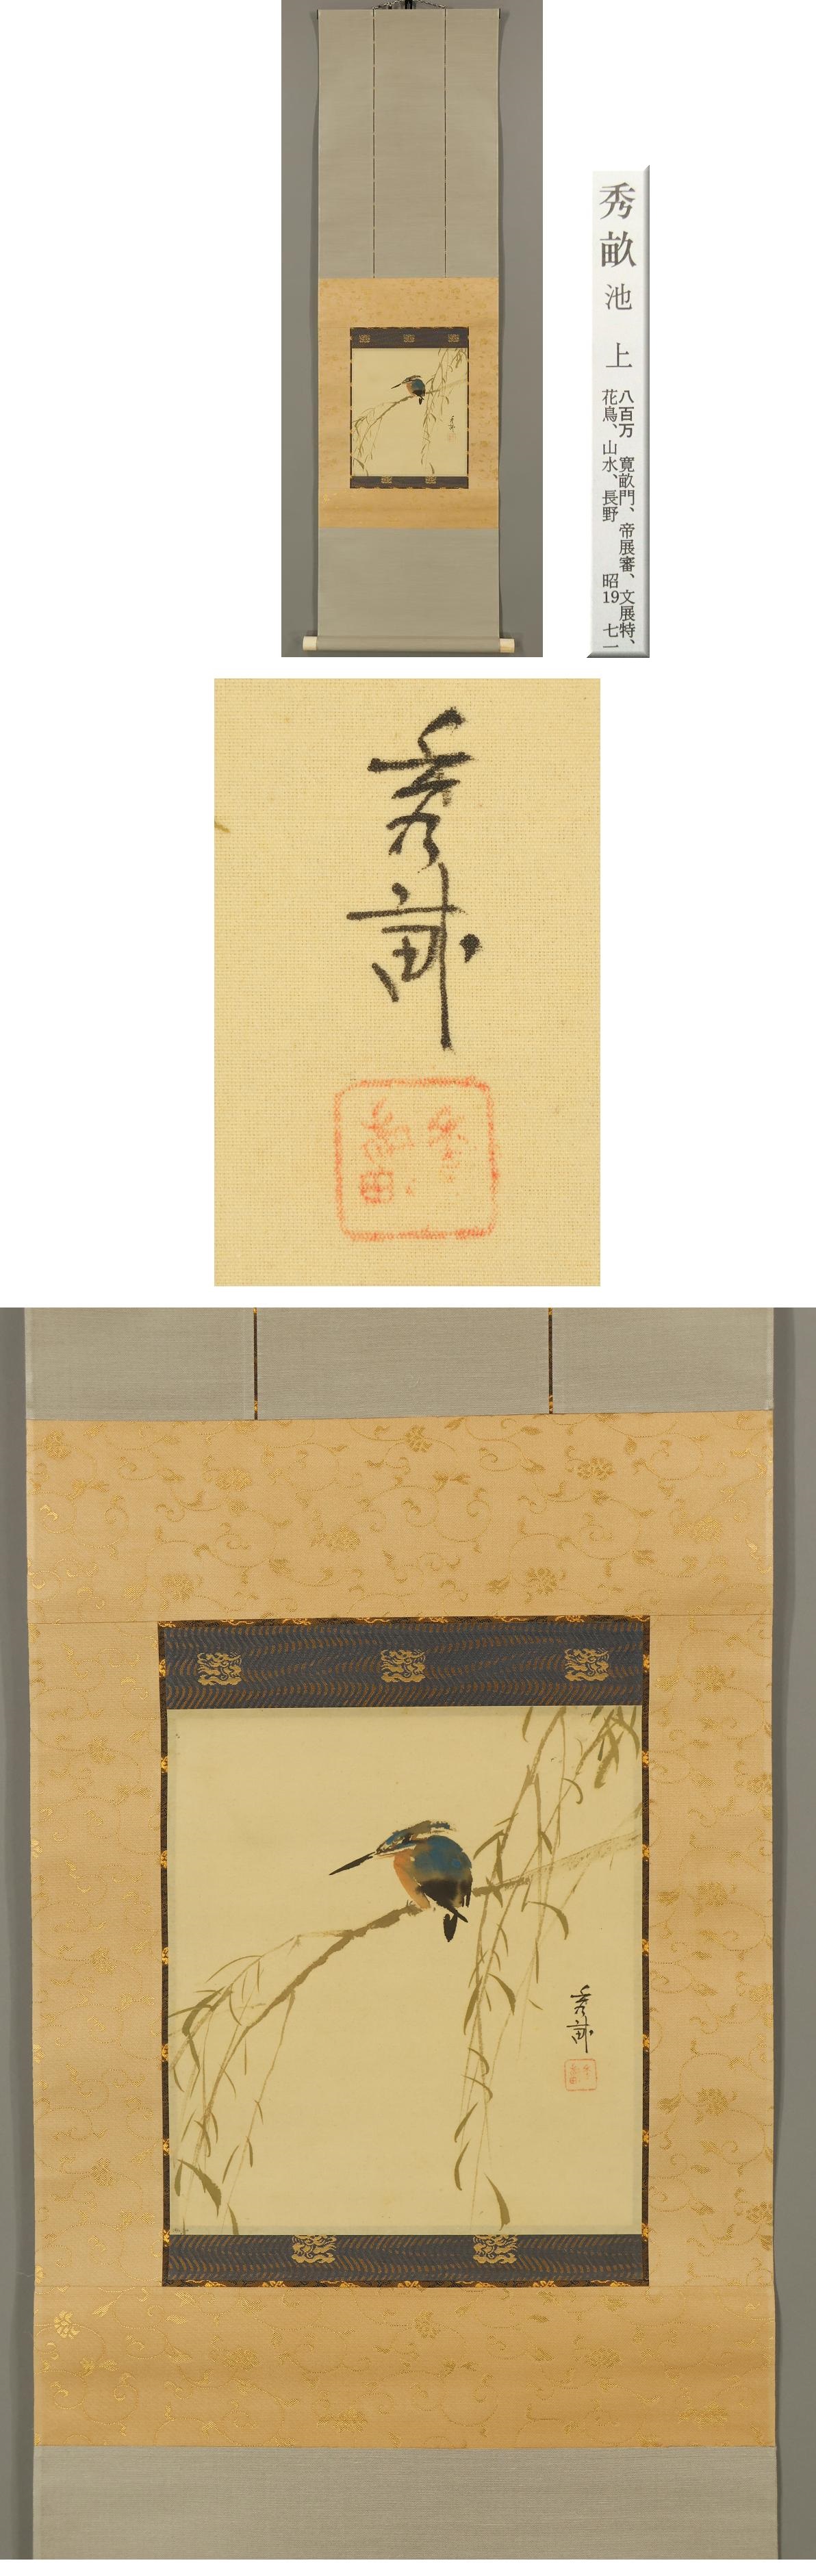 秀畝 池上
八百万 寛畝門、帝展審、文展特、
花鳥、山水、長野 昭19 七一
秀畝
秀畝
秀畝